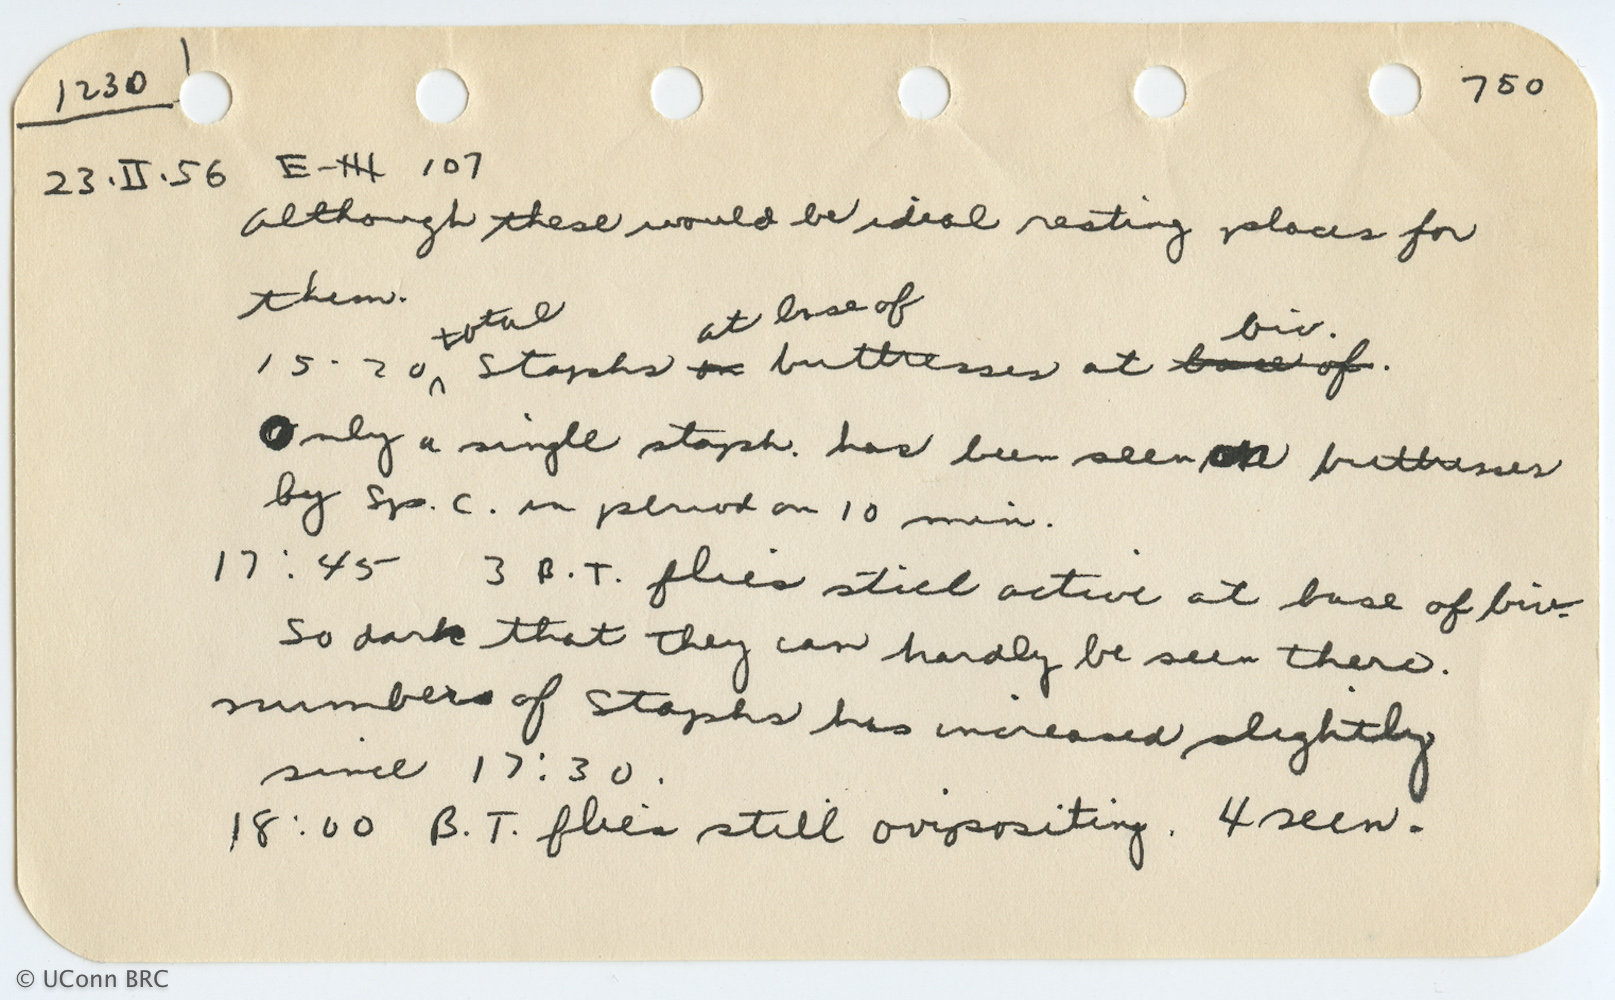 1230
750
23.II.56 E-III 107
although these would be ideal resting places for
them.
total at base of biv.
15-20 ^ Staphs on buttresses at base of.
Only a single staph. has been seen on buttresses
by Sp. C. in period on 10 min.
17:45 3 B.T. flies still active at base of biv.
So dark that they can hardly be seen there.
numbers of Staphs has increased slightly
since 17:30.
18:00 B.T. flies still ovipositing. 4 seen.
© UConn BRC